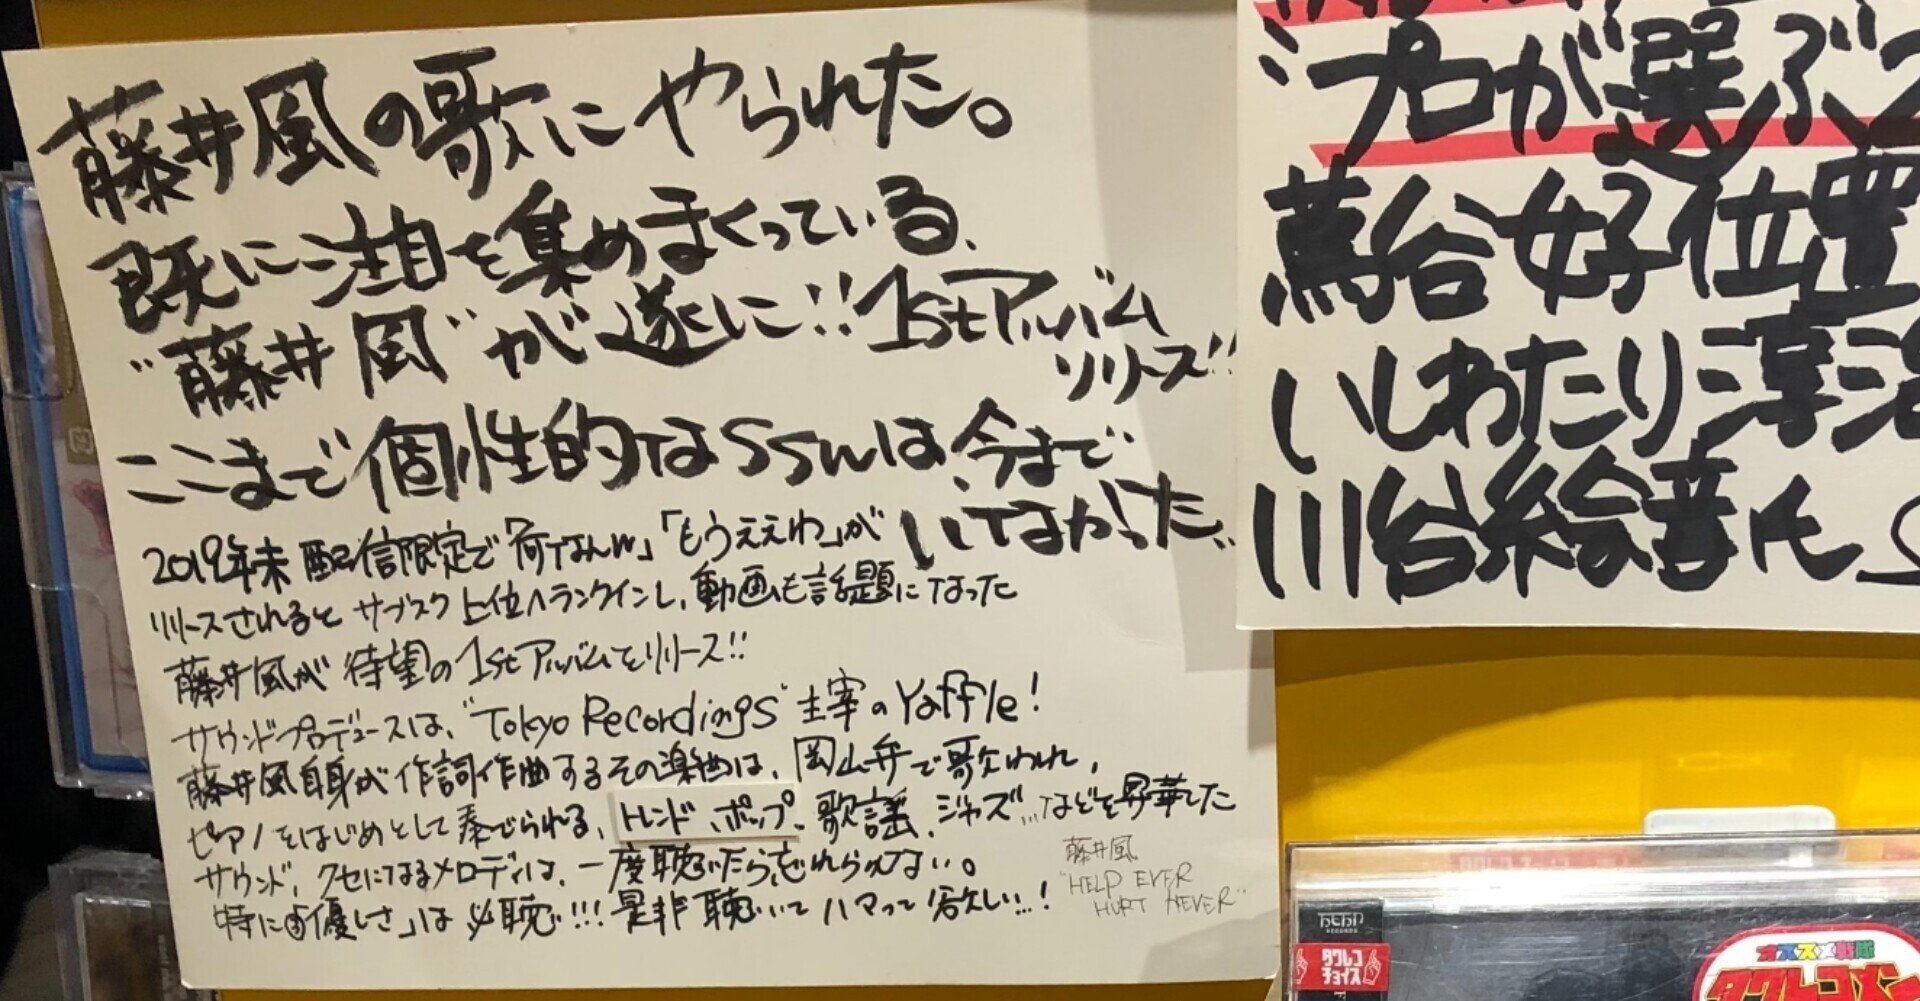 藤井風の歌にやられた。
既に注目を集めまくっている、
"藤井風"が遂に!!1stアルバム
リリース!!
ここまで個性的なSSWは、今まで
いなかった。
2019年末 配信限定で「何なんw」「もうええわ」が
リリースされるとサブスク上位へランクインし、動画も話題になった
藤井風が待望の1stアルバムをリリース!!
サウンドプロデュースは、"Tokyo Recordings"主宰のYaffle!
藤井風自身が作詞作曲するその楽曲は、岡山弁で歌われ、
ピアノをはじめとして奏でられる、トレンド、ポップ、歌謡、ジャズ…などを昇華した
サウンド、クセになるメロディは、一度聴いたら忘れられない。
特に⑤「優しさ」は必聴!!!是非聴いてハマって欲しい…!
藤井風
"HELP EVER
HURT NEVER"
プロが選ぶ2
蔦谷好位置
いしわたり淳治
川谷絵音氏
RECORDS
タワレコ
チョイス
オススメ戦隊
タワレコメン